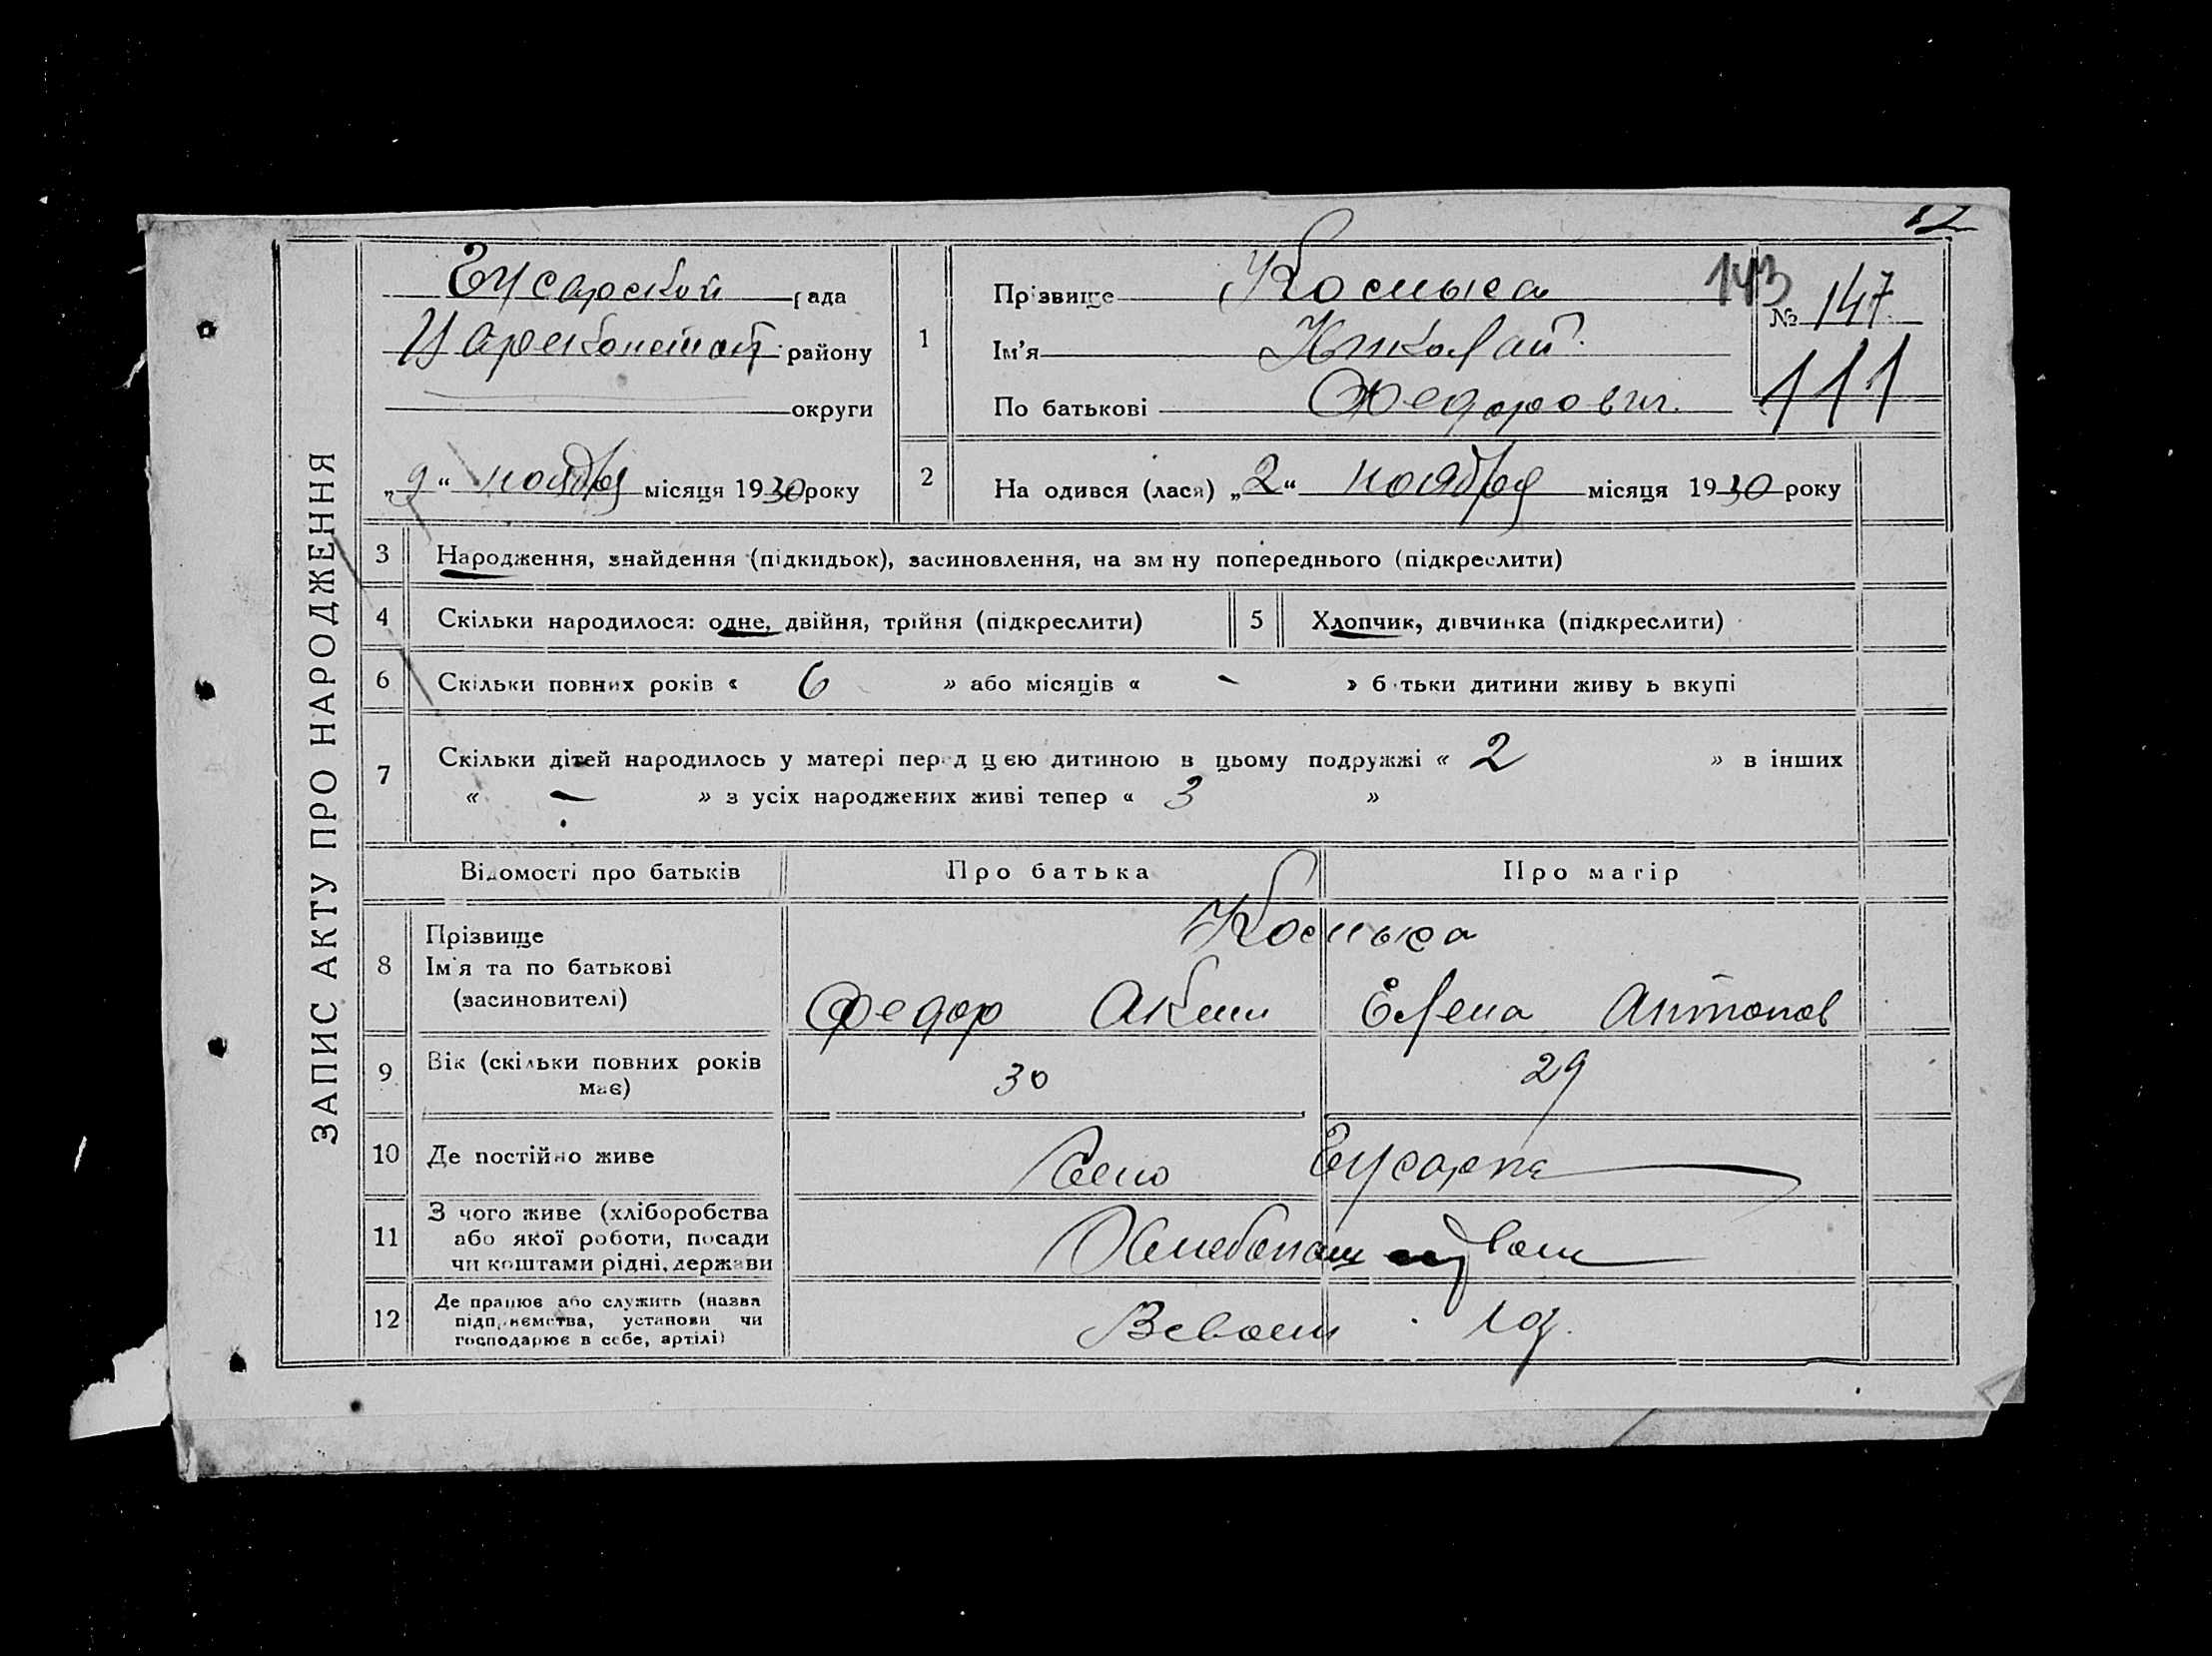 12
ЗАПИС АКТУ ПРО НАРОДЖЕННЯ
Гусарской рада
Царекон район у
округи
„9“ ноября місяця 1930 року
1
Прізвище Космыса
Ім'я Николай
По батькові Федорович.
143
№ 147
111
2 На одився (лася) „2“ ноября місяця 1930 року
3 Народження, знайдення (підкидьок), засиновлення, на зм ну попереднього (підкреслити)
4 Скільки народилося: одне, двійня, трійня (підкреслити) 5 Хлопчик, дівчинка (підкреслити)
6 Скільки повних років « 6 » або місяців « - » б тьки дитини живу ь вкупі
7 Скільки дітей народилось у матері перед цією дитиною в цьому подружжі « 2 » в інших
« - » з усіх народжених живі тепер « 3 »
Відомості про батьків Про батька Про матір
8 Прізвище
Ім'я та по батькові
(засиновителі)
Космыса
Федор Аким Елена Антонов
9 Вік (скільки повних років
має)
30 29
10 Де постійно живе Село Гусарка
11 З чого живе (хліборобства
або якої роботи, посади
чи коштами рідні, держави
Хлебопаш
12 Де працює або служить (назва
підприємства, установи чи
господарює в себе, артілі)
В своем